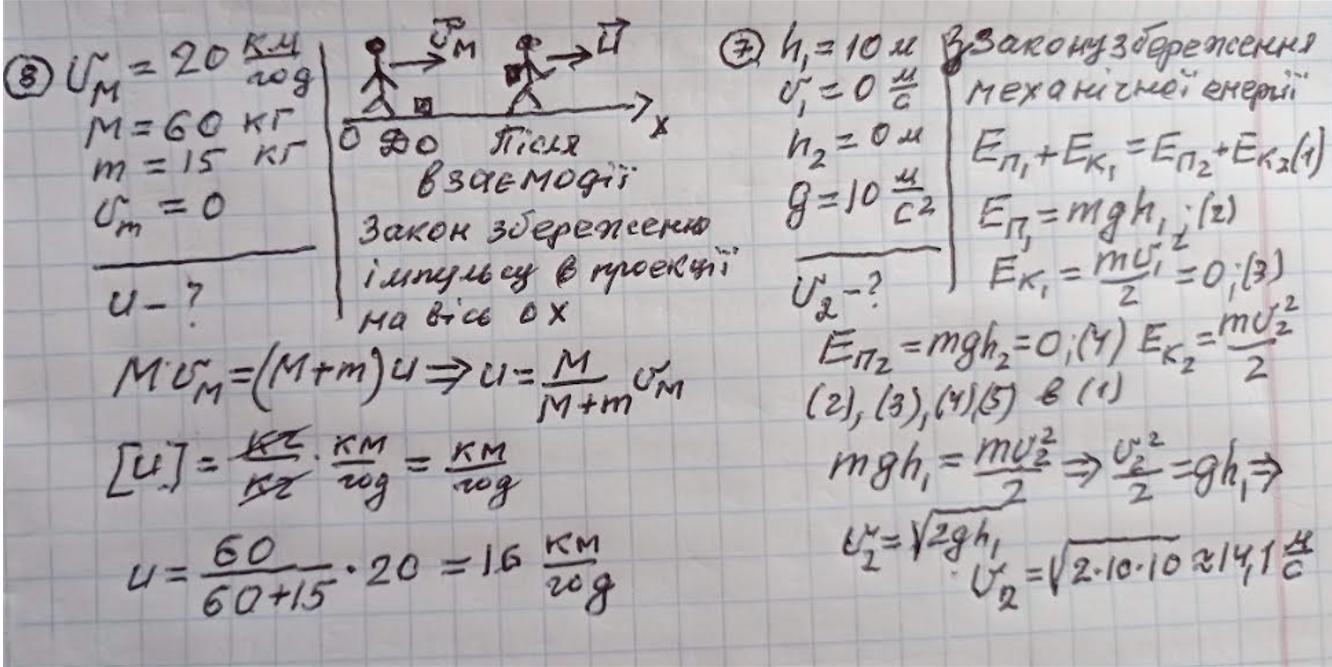 ⑧ υ_M = 20 км/год
M = 60 кг
m = 15 кг
υ_m = 0
u – ?
υ⃗_M u⃗
0 До Після x
взаємодії
Закон збереженню
імпульсу в проекції
на вісь ОХ
M·υ_M = (M+m)u ⇒ u = M/(M+m) υ_M
[u] = кг/кг · км/год = км/год
u = 60/(60+15) · 20 = 16 км/год
⑦ h₁ = 10 м
υ₁ = 0 м/с
h₂ = 0 м
g = 10 м/с²
υ₂ – ?
З Закону збереження
механічної енергії
E_П₁ + E_К₁ = E_П₂ + E_К₂ (1)
E_П₁ = mgh₁; (2)
E_К₁ = mυ₁²/2 = 0; (3)
E_П₂ = mgh₂ = 0; (4) E_К₂ = mυ₂²/2
(2), (3), (4) (5) в (1)
mgh₁ = mυ₂²/2 ⇒ υ₂²/2 = gh₁ ⇒
υ₂ = √2gh₁
υ₂ = √2·10·10 ≈ 14,1 м/с